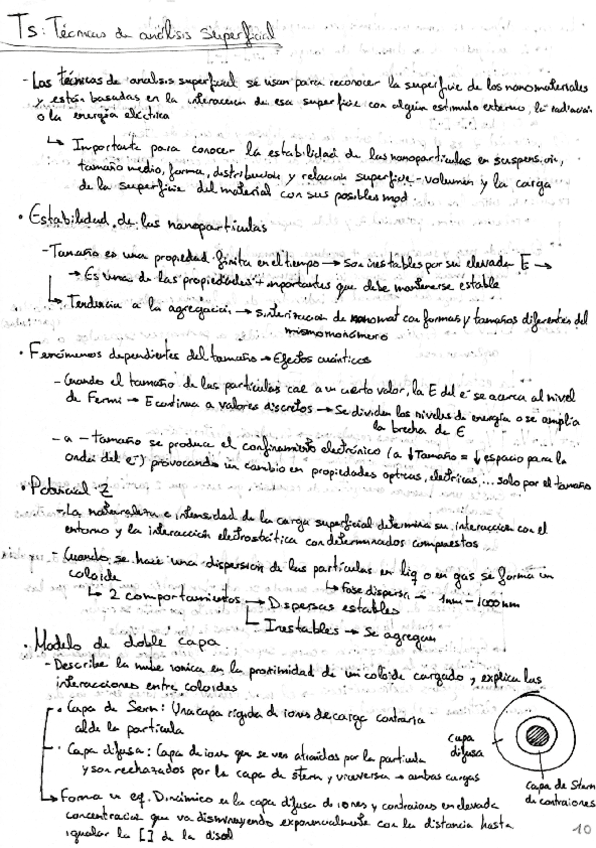 T5: Técnicas de análisis superficial
- Las técnicas de analisis superficial se usan para reconocer la superficie de los nanomateriales
y están basadas en la interaccion de esa superficie con algún estimulo externo, la radiacion
o la energia eléctrica
↳ Importante para conocer la estabilidad de las nanoparticulas en suspension,
tamaño medio, forma, distribucion y relacion superficie-volumen y la carga
de la superficie del material con sus posibles mod
• Estabilidad de las nanoparticulas
- Tamaño es una propiedad finita en el tiempo → Son inestables por su elevada E →
→ Es una de las propiedades + importantes que debe mantenerse estable
↳ Tendencia a la agregación → sinterizacion de nanomat con formas y tamaños diferentes del
mismo monómero
• Fenómenos dependientes del tamaño → Efectos cuánticos
- Cuando el tamaño de las particulas cae a un cierto valor, la E del e⁻ se acerca al nivel
de Fermi → E continua a valores discretos → Se dividen los niveles de energía o se amplia
la brecha de E
- a - tamaño se produce el confinamiento electrónico (a ↓Tamaño = ↓ espacio para la
onda del e⁻) provocando un cambio en propiedades opticas, electricas,... solo por el tamaño
• Potencial Z
- La naturaleza e intensidad de la carga superficial determina su interaccion con el
entorno y la interacción electrostática con determinados compuestos
- Cuando se hace una dispersion de las particulas en liq o en gas se forma un
coloide
↳ Fase dispersa → 1nm - 1000nm
↳ 2 comportamientos → Dispersas estables
↳ Inestables → Se agregan
• Modelo de doble capa
- Describe la nube ionica en la proximidad de un coloide cargado y explica las
interacciones entre coloides
• Capa de Stern: Una capa rigida de iones de carga contraria
al de la particula
• Capa difusa: Capa de iones que se ven atraidos por la particula
y son rechazados por la capa de stern y viceversa → ambas cargas
↳ Forma un eq. Dinámico en la capa difusa de iones y contraiones en elevada
concentracion que va disminuyendo exponencialmente con la distancia hasta
igualar la [] de la disol
capa
difusa
capa de Stern
de contraiones
10